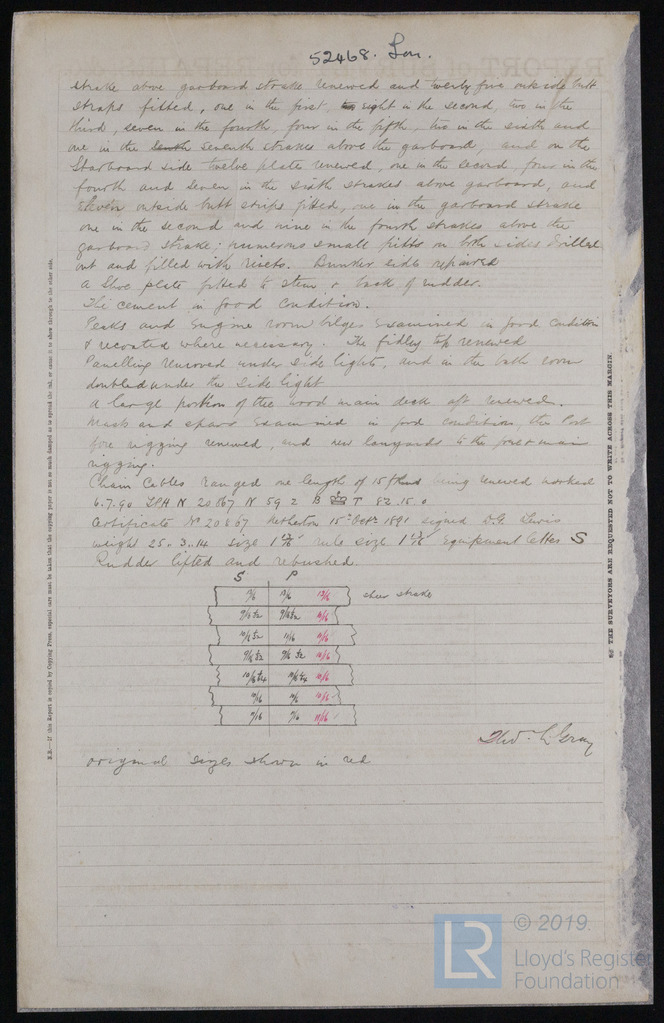 52468. Lon.
strake above garboard strake renewed and twenty five outside butt
straps fitted, one in the first, eight in the second, two in the
third, seven in the fourth, four in the fifth, two in the sixth and
one in the seventh strakes above the garboard, and on the
Starboard side twelve plates renewed, one in the second, four in the
fourth and seven in the sixth strakes above garboard, and
eleven outside butt strips fitted, one in the garboard strake
one in the second and nine in the fourth strakes above the
garboard strake; numerous small pitts on both sides drilled
out and filled with rivets. Bunker lids repaired
A Shoe plate fitted to stem & back of rudder.
The cement in good condition.
Peaks and Engine room bilges examined in good condition
& recoated where necessary. The fidley top renewed
Panelling removed under side lights, and in the bath room
doubled under the side light
A large portion of the wood main deck aft renewed.
Masts and spars examined in good condition, the Port
fore rigging renewed, and new lanyards to the fore & main
rigging.
Chain Cables ranged one length of 15 being renewed marked
6.7.90 N 20867 N 59 2 B T 82.15.0
Certificate No 20867 Netherton 15th Octr 1891 signed Lewis
weight 25.. 3..14 size rule size Equipment letter S
Rudder lifted and rebushed.
S P
sheer strake
10/16
10/16
10/16
10/16
10/16
11/16
original sizes shown in red
N.B.—If this Report is copied by Copying Press, especial care must be taken that the copying paper is not so much damped as to spread the ink, or cause it to show through to the other side.
THE SURVEYORS ARE REQUESTED NOT TO WRITE ACROSS THIS MARGIN.
LR
© 2019.
Lloyd's Register
Foundation